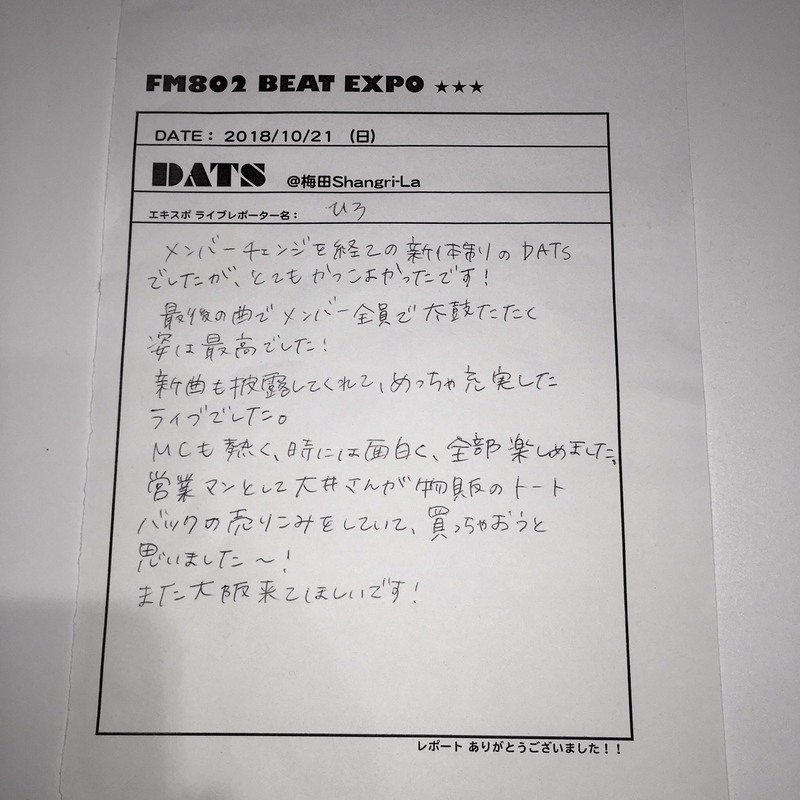 FM802 BEAT EXPO ★★★
DATE : 2018/10/21 (日)
DATS @梅田Shangri-La
エキスポ ライブレポーター名: ひろ
メンバーチェンジを経ての新体制のDATS
でしたが、とてもかっこよかったです!
最後の曲でメンバー全員で太鼓たたく
姿は最高でした!
新曲も披露してくれて、めっちゃ充実した
ライブでした。
MCも熱く、時には面白く、全部楽しめました。
営業マンとして大井さんが物販のトート
バックの売りこみをしていて、買っちゃおうと
思いました〜!
また大阪来てほしいです!
レポート ありがとうございました!!